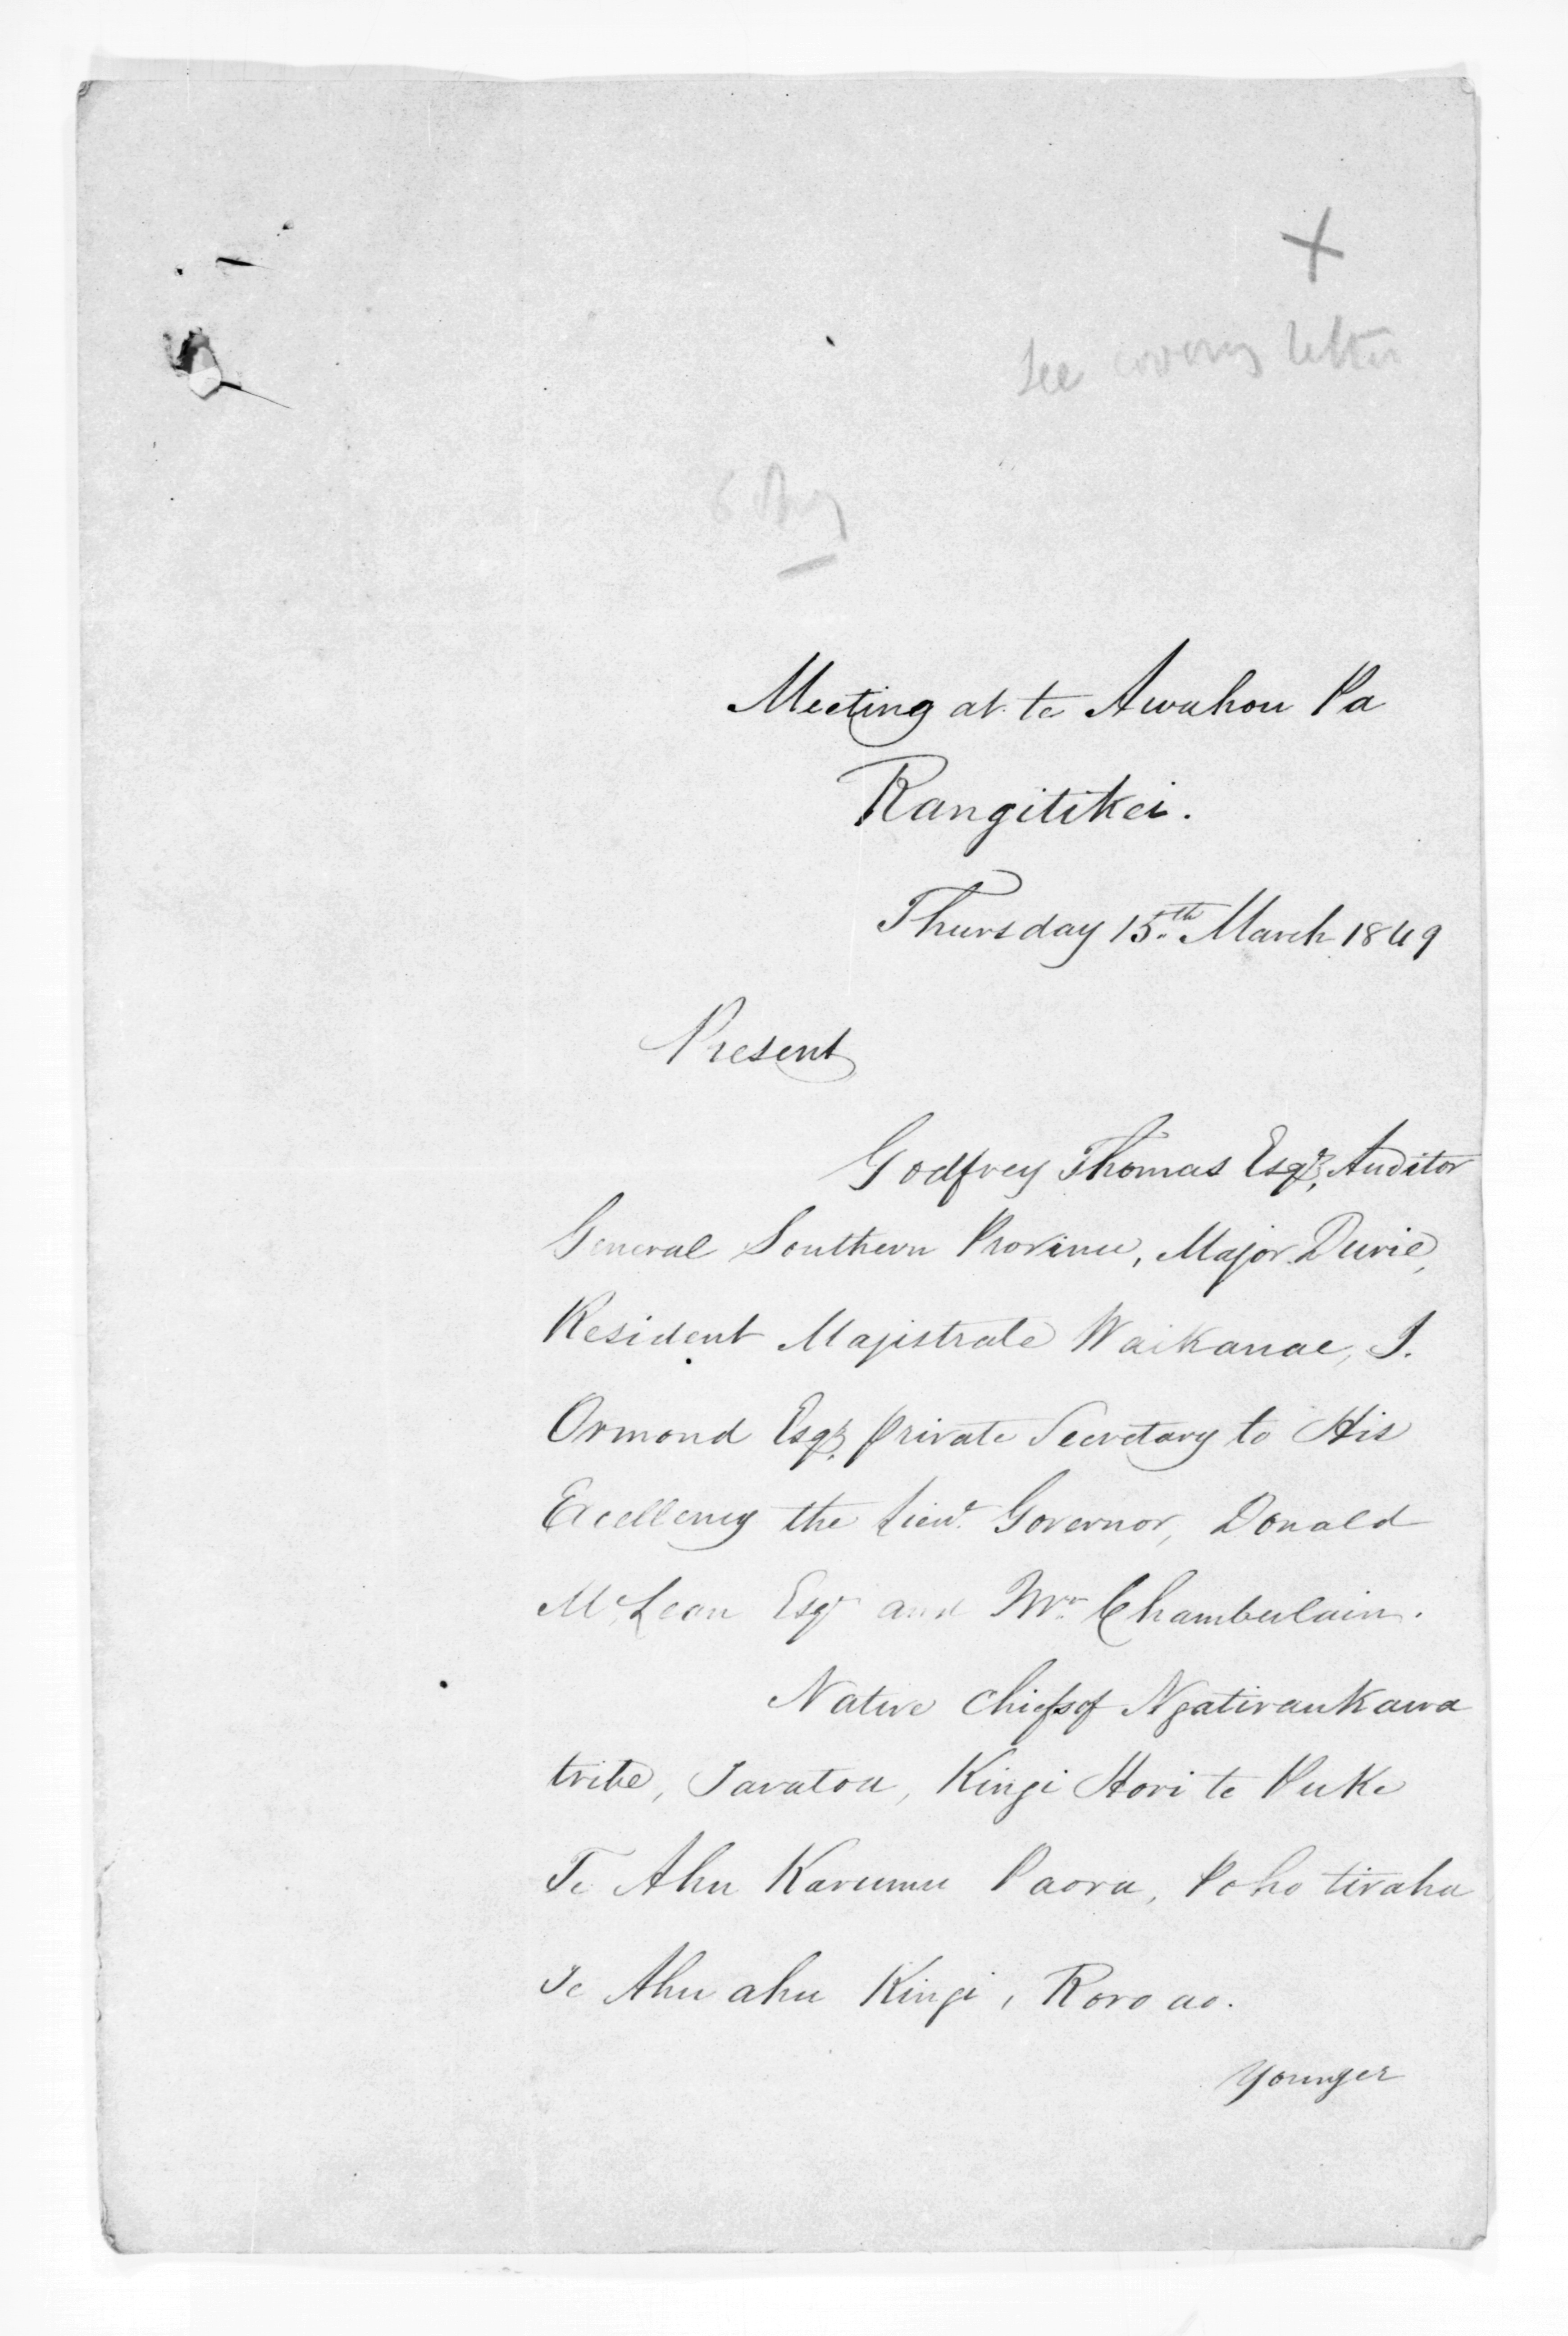 +
See covering letter
Meeting at te Awahou Pa
Rangitikei.
Thursday 15th March 1849
Present
Godfrey Thomas Esqr, Auditor
General Southern Province, Major Durie,
Resident Magistrate Waikanae, J.
Ormond Esqr, private Secretary to His
Excellency the Lieut. Governor, Donald
McLean Esqr and Mr. Chamberlain.
Native chiefs of Ngatiraukawa
tribe, Taratoa, Kingi Hori te Puke
Te Ahu Karumu Paora, Poho tiraha
Te Ahu ahu Kingi, Roro ao.
younger